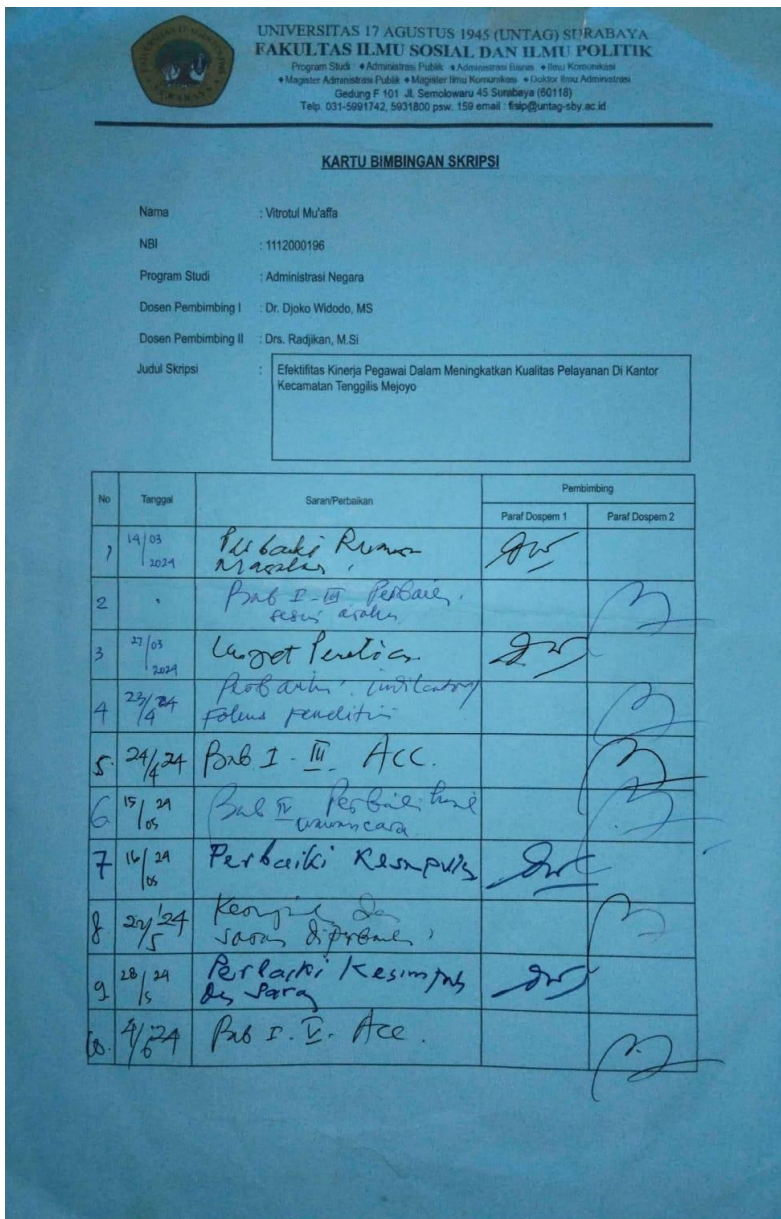 UNIVERSITAS 17 AGUSTUS 1945 (UNTAG) SURABAYA
FAKULTAS ILMU SOSIAL DAN ILMU POLITIK
Program Studi : ♦Administrasi Publik ♦Administrasi Bisnis ♦Ilmu Komunikasi
♦Magister Administrasi Publik ♦Magister Ilmu Komunikasi ♦Doktor Ilmu Administrasi
Gedung F 101 Jl. Semolowaru 45 Surabaya (60118)
Telp. 031-5991742, 5931800 psw. 159 email : fisip@untag-sby.ac.id
KARTU BIMBINGAN SKRIPSI
Nama : Vitrotul Mu'affa
NBI : 1112000196
Program Studi : Administrasi Negara
Dosen Pembimbing I : Dr. Djoko Widodo, MS
Dosen Pembimbing II : Drs. Radjikan, M.Si
Judul Skripsi : Efektifitas Kinerja Pegawai Dalam Meningkatkan Kualitas Pelayanan Di Kantor
Kecamatan Tenggilis Mejoyo
No Tanggal Saran/Perbaikan Pembimbing
Paraf Dospem 1 Paraf Dospem 2
1 14/03 2024
2 Bab I - III
3 27/03 2024
4 23/4 24
5. 24/4 24 Bab I - III ACC.
6 15/05 24 Bab IV wawancara
7 16/05 24 Perbaiki
8. saran
9 28/5 24
10. 4/6 24 Bab I - V. Acc.